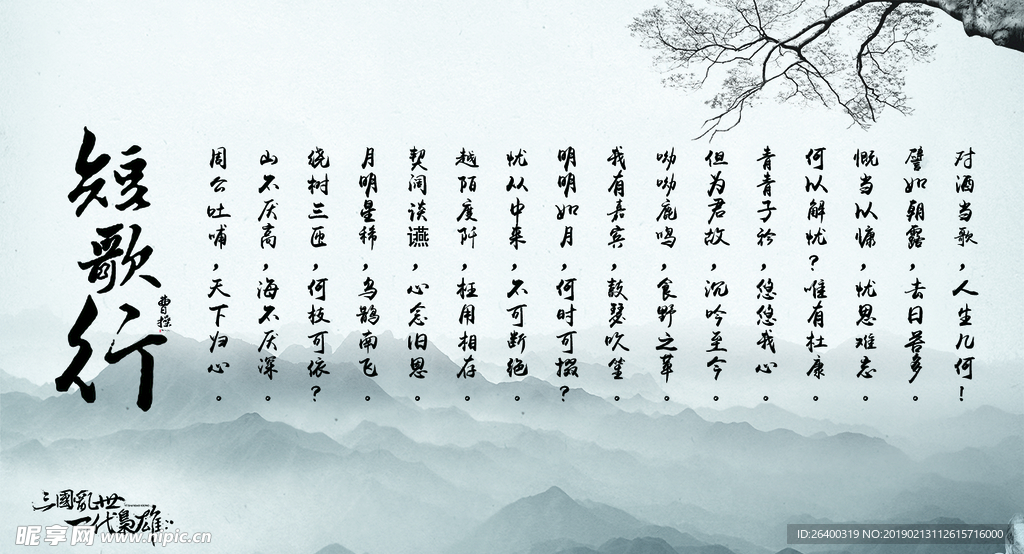 对酒当歌,人生几何!
譬如朝露,去日苦多。
慨当以慷,忧思难忘。
何以解忧?唯有杜康。
青青子衿,悠悠我心。
但为君故,沉吟至今。
呦呦鹿鸣,食野之苹。
我有嘉宾,鼓瑟吹笙。
明明如月,何时可掇?
忧从中来,不可断绝。
越陌度阡,枉用相存。
契阔谈讌,心念旧恩。
月明星稀,乌鹊南飞。
绕树三匝,何枝可依?
山不厌高,海不厌深。
周公吐哺,天下归心。
曹操
短歌行
三國亂世
一代梟雄
昵享网 www.nipic.cn
ID:26400319 NO:20190213112615716000